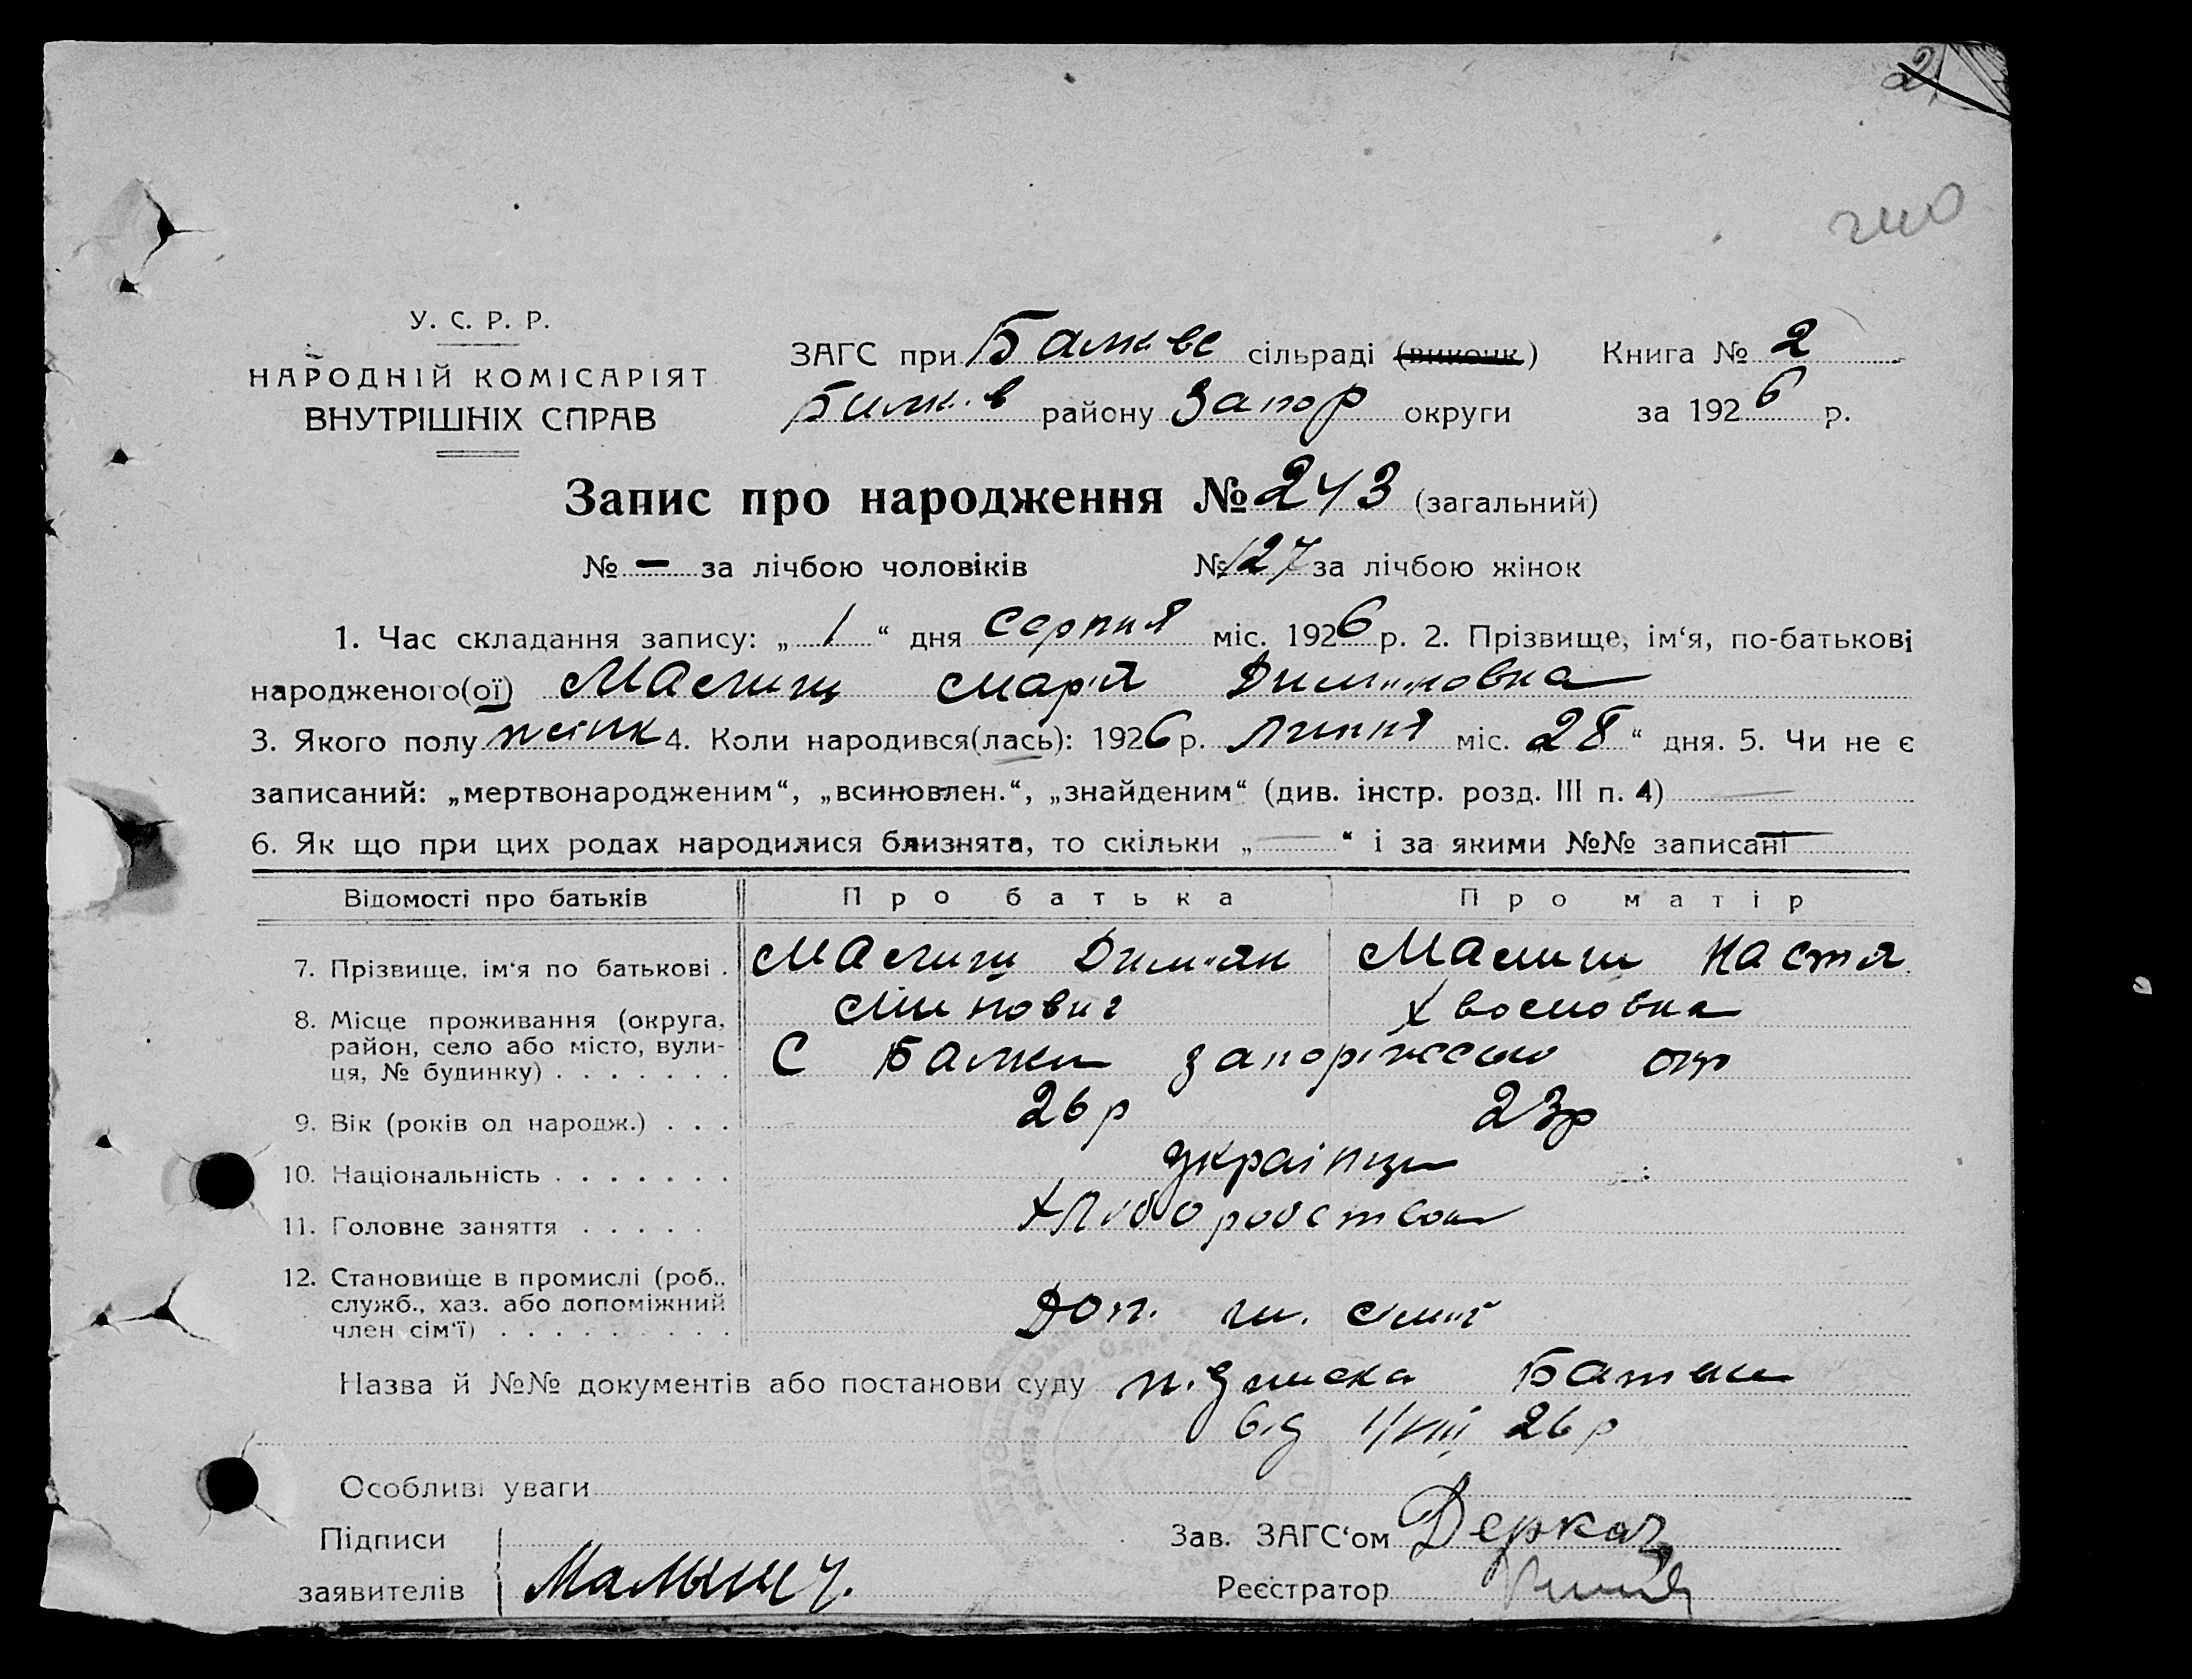 2
240
У. С. Р. Р.
НАРОДНІЙ КОМІСАРІЯТ
ВНУТРІШНІХ СПРАВ
ЗАГС при Балківс сільраді (виконк) Книга № 2
Балків району Запор округи за 1926 р.
Запис про народження № 243 (загальний)
№ — за лічбою чоловіків № 127 за лічбою жінок
1. Час складання запису: „ 1 “ дня Серпня міс. 1926 р. 2. Прізвище, ім‘я, по-батькові
народженого(ої) Малиш Марія
3. Якого полу жінк 4. Коли народився(лась): 1926 р. Липня міс. „28“ дня. 5. Чи не є
записаний: „мертвонародженим“, „всиновлен.“, „знайденим“ (див. інстр. розд. III п. 4) —
6. Як що при цих родах народилися близнята, то скільки „ — “ і за якими №№ записані —
Відомості про батьків Про батька Про матір
7. Прізвище, ім‘я по батькові . Малиш Дим‘ян Малиш Настя
Минович
8. Місце проживання (округа, район, село або місто, вулиця, № будинку) . . . . . . . С Балки запоріжсько окр
9. Вік (років од народж.) . . . 26 р 23 р
10. Національність . . . . . . . українци
11. Головне заняття . . . . . хліборобством
12. Становище в промислі (роб., служб., хаз. або допоміжний член сім‘ї) . . . . . . . . . Доп. чл. сімії
Назва й №№ документів або постанови суду підписка Батьки
від 1/VIII 26 р
Особливі уваги
Підписи
заявителів Малышъ
Зав. ЗАГС‘ом Деркач
Реєстратор